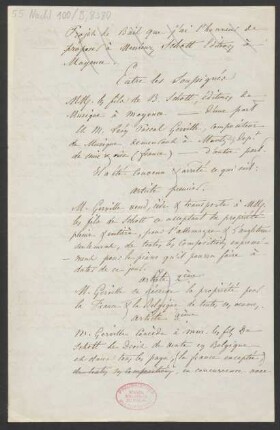 55 Nachl 100/B,
Projet de Bail que j'ai l'honneur de
proposer à Messieurs Schott Editeurs à
Mayence.
Entre les Soussignés
MM. les fils de B. Schott, Editeurs de
Musique à Mayence. D'une part
Et M. Pascal Gerville, compositeur
de Musique demeurant à
de Seine & Oise (France) d'autre part.
Il a été convenu & arrêté ce qui suit:
article premier.
M. Gerville vend, cède & transporte à MM.
les fils de Schott en acceptant la propriété
pleine & entière, pour l'Allemagne & l'Angleterre
seulement, de toutes les compositions
pour le piano qu'il pourra faire à
dater de ce jour.
article 2ème
M. Gerville se réserve la propriété pour
la France & la Belgique de toutes ces œuvres,
article 3ème
M. Gerville concède à mess. les fils de
Schott le droit de vente en Belgique
et dans tous les pays, (la France exceptée)
de toutes ses compositions, en concurrence avec